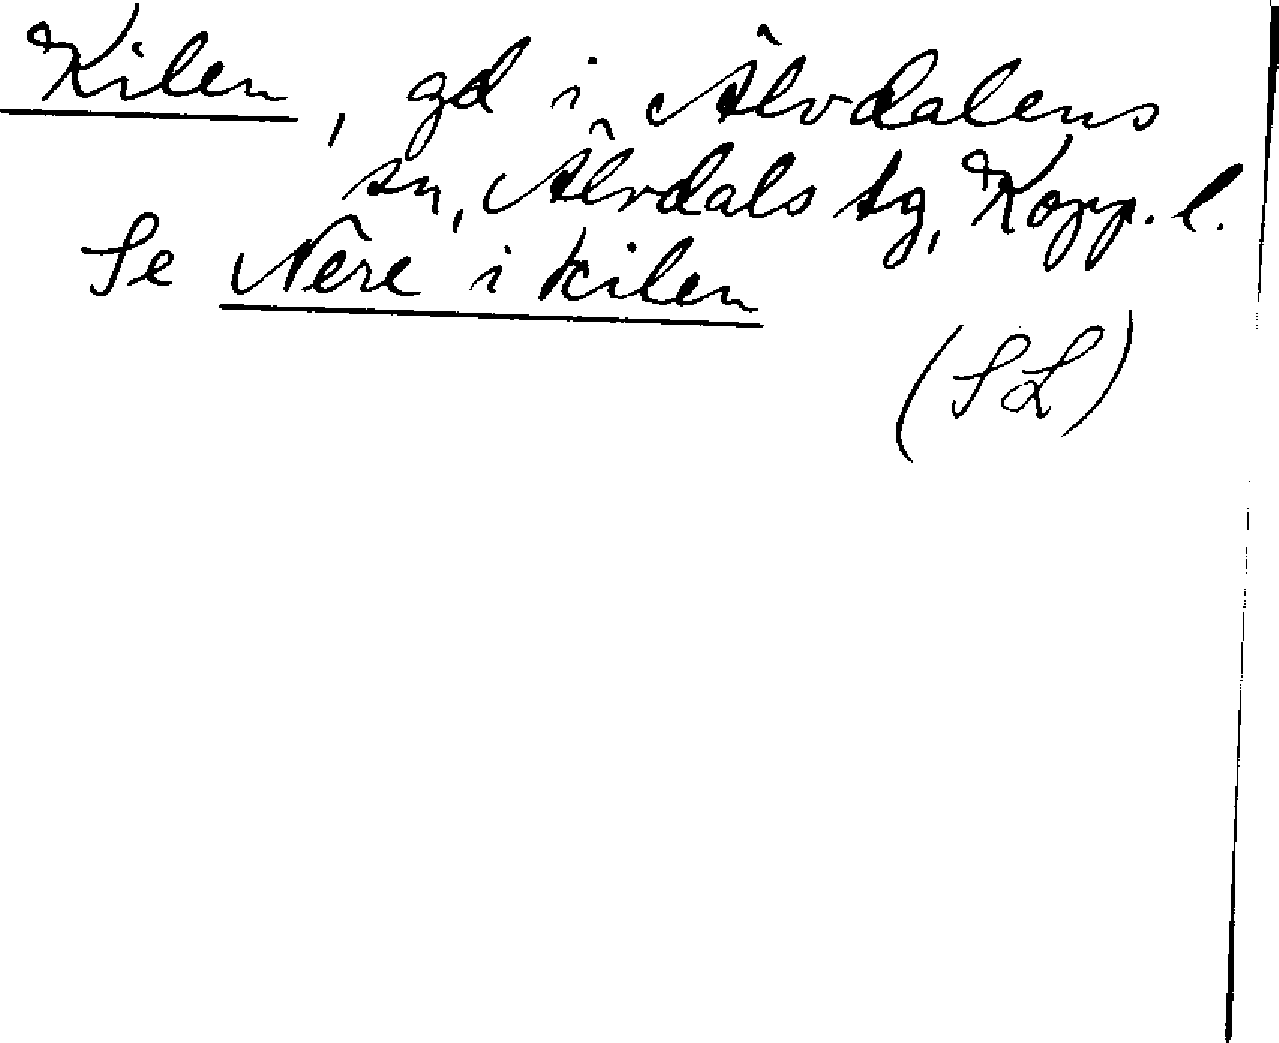 Kilen, gd i Älvdalens
sn, Älvdals tg, Kopp. l.
Se Nere i kilen
(SL)